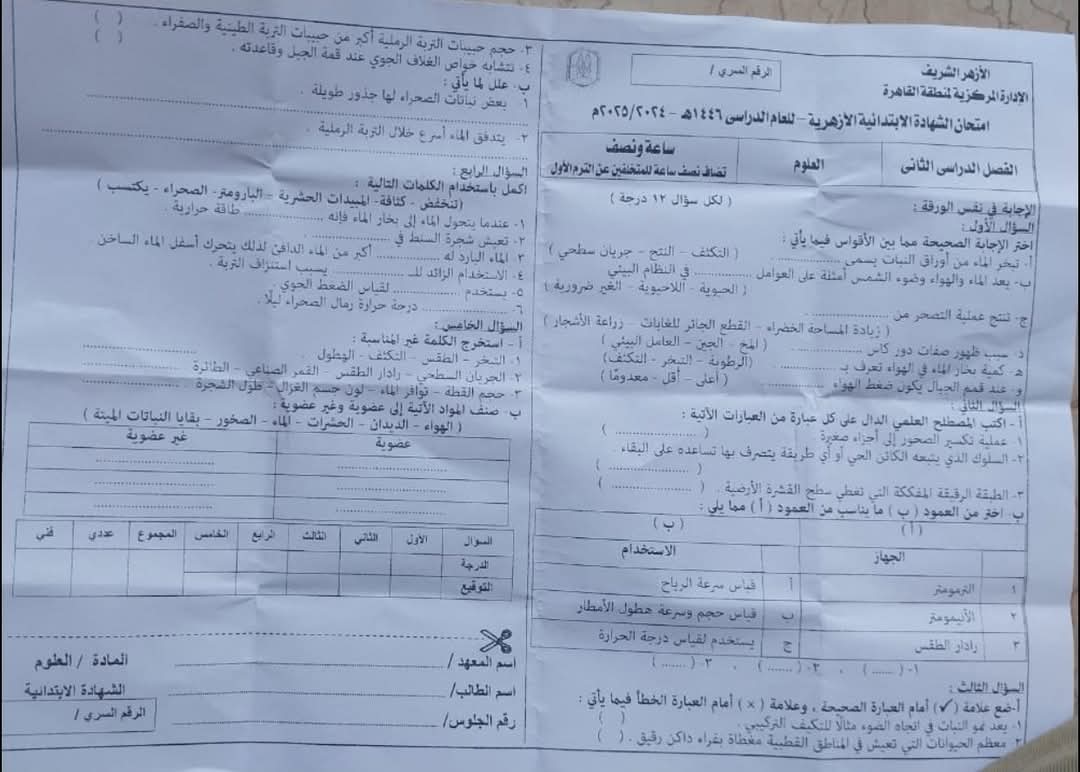 الأزهر الشريف
الإدارة المركزية لمنطقة القاهرة
الرقم السري /
امتحان الشهادة الابتدائية الأزهرية - للعام الدراسى ١٤٤٦هـ - ٢٠٢٥/٢٠٢٤م
الفصل الدراسى الثانى
العلوم
ساعة ونصف
تضاف نصف ساعة للمتخلفين عن الترم الأول
الإجابة في نفس الورقة :
( لكل سؤال ١٢ درجة )
السؤال الأول:
اختر الإجابة الصحيحة مما بين الأقواس فيما يأتي :
أ- تبخر الماء من أوراق النبات يسمى .............. ( التكثف - النتح - جريان سطحي )
ب- يعد الماء والهواء وضوء الشمس أمثلة على العوامل .............. في النظام البيئي
( الحيوية - اللاحيوية - الغير ضرورية )
ج- تنتج عملية التصحر من ..............
( زيادة المساحة الخضراء - القطع الجائر للغابات - زراعة الأشجار )
د- سبب ظهور صفات دور كاس .............. ( المخ - الجين - العامل البيئي )
هـ- كمية بخار الماء في الهواء تعرف بـ .............. (الرطوبة - التبخر - التكثف)
و- عند قمم الجبال يكون ضغط الهواء .............. ( أعلى - أقل - معدومًا )
السؤال الثاني :
أ - اكتب المصطلح العلمي الدال على كل عبارة من العبارات الآتية :
١- عملية تكسير الصخور إلى أجزاء صغيرة ( .................... )
٢- السلوك الذي يتبعه الكائن الحي أو أي طريقة يتصرف بها تساعده على البقاء .
( .................... )
٣- الطبقة الرقيقة المفككة التي تغطي سطح القشرة الأرضية . ( .................... )
ب- اختر من العمود ( ب ) ما يناسب من العمود ( أ ) مما يلي :
( أ )
( ب )
الجهاز
الاستخدام
١ الترمومتر أ قياس سرعة الرياح
٢ الأنيمومتر ب قياس حجم وسرعة هطول الأمطار
٣ رادار الطقس ج يستخدم لقياس درجة الحرارة
١- ( ...... ) ، ٢- ( ...... ) ، ٣- ( ...... )
السؤال الثالث :
أ-ضع علامة (✓) أمام العبارة الصحيحة ، وعلامة ( × ) أمام العبارة الخطأ فيما يأتي :
١- يعد نمو النبات في اتجاه الضوء مثالًا للتكيف التركيبي. ( )
٢- معظم الحيوانات التي تعيش في المناطق القطبية مغطاة بفراء داكن رقيق . ( )
٣- حجم حبيبات التربة الرملية أكبر من حبيبات التربة الطينية والصفراء . ( )
٤- تتشابه خواص الغلاف الجوي عند قمة الجبل وقاعدته . ( )
ب- علل لما يأتي :
١- بعض نباتات الصحراء لها جذور طويلة .
٢- يتدفق الماء أسرع خلال التربة الرملية .
السؤال الرابع :
اكمل باستخدام الكلمات التالية :
(تنخفض - كثافة- المبيدات الحشرية - البارومتر- الصحراء - يكتسب )
١- عندما يتحول الماء إلى بخار الماء فإنه .............. طاقة حرارية .
٢- تعيش شجرة السنط في ..............
٣- الماء البارد له .............. أكبر من الماء الدافئ لذلك يتحرك أسفل الماء الساخن.
٤- الاستخدام الزائد للـ .............. يسبب استنزاف التربة .
٥- يستخدم .............. لقياس الضغط الجوي .
٦- .............. درجة حرارة رمال الصحراء ليلًا .
السؤال الخامس :
أ - استخرج الكلمة غير المناسبة :
١- التبخر - الطقس - التكثف - الهطول .
٢- الجريان السطحي - رادار الطقس - القمر الصناعي - الطائرة
٣- حجم القطة - توافر الماء - لون جسم الغزال - طول الشجرة
ب- صنف المواد الآتية إلى عضوية وغير عضوية :
( الهواء - الديدان - الحشرات - الماء - الصخور - بقايا النباتات الميتة )
عضوية
غير عضوية
السؤال الأول الثاني الثالث الرابع الخامس المجموع عددي فني
الدرجة
التوقيع
اسم المعهد /
المادة / العلوم
اسم الطالب/
الشهادة الابتدائية
رقم الجلوس/
الرقم السري /